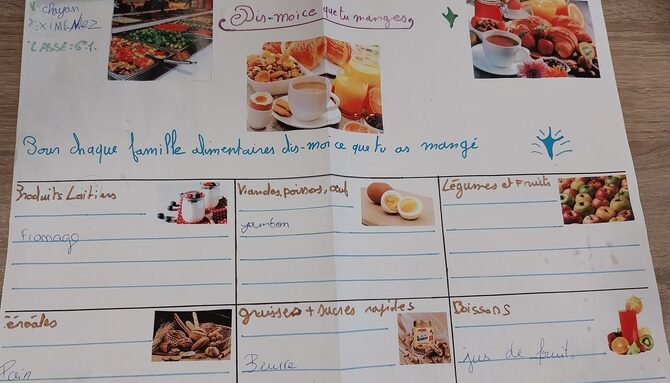 chayan
XIMENEZ
CLASSE: 6°1
Dis-moi ce que tu manges
Sous chaque famille alimentaires dis-moi ce que tu as mangé
Produits Laitiers
Fromage
Viandes, poissons, oeuf
jambon
Légumes et Fruits
céréales
Pain
graisses + sucres rapides
Beurre
Boissons
jus de fruit